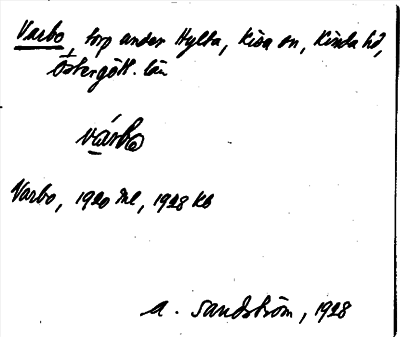 Varbo, torp under Hylta, Kisa sn, Kinda hd,
Östergötl. län
vár̀bo
Varbo, 1920 Ml, 1928 Kb
A. Sandström, 1928